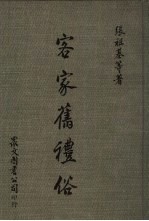 張祖基等著
客家舊禮俗
眾文圖書公司印行